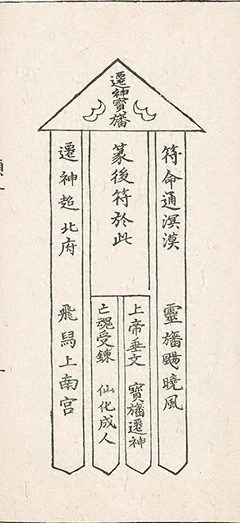 遷神寳旛
符命通溟漠 靈旛颺曉風
篆後符於此
上帝垂文 寳旛遷神
亡魂受鍊 仙化成人
遷神超北府 飛舄上南宫